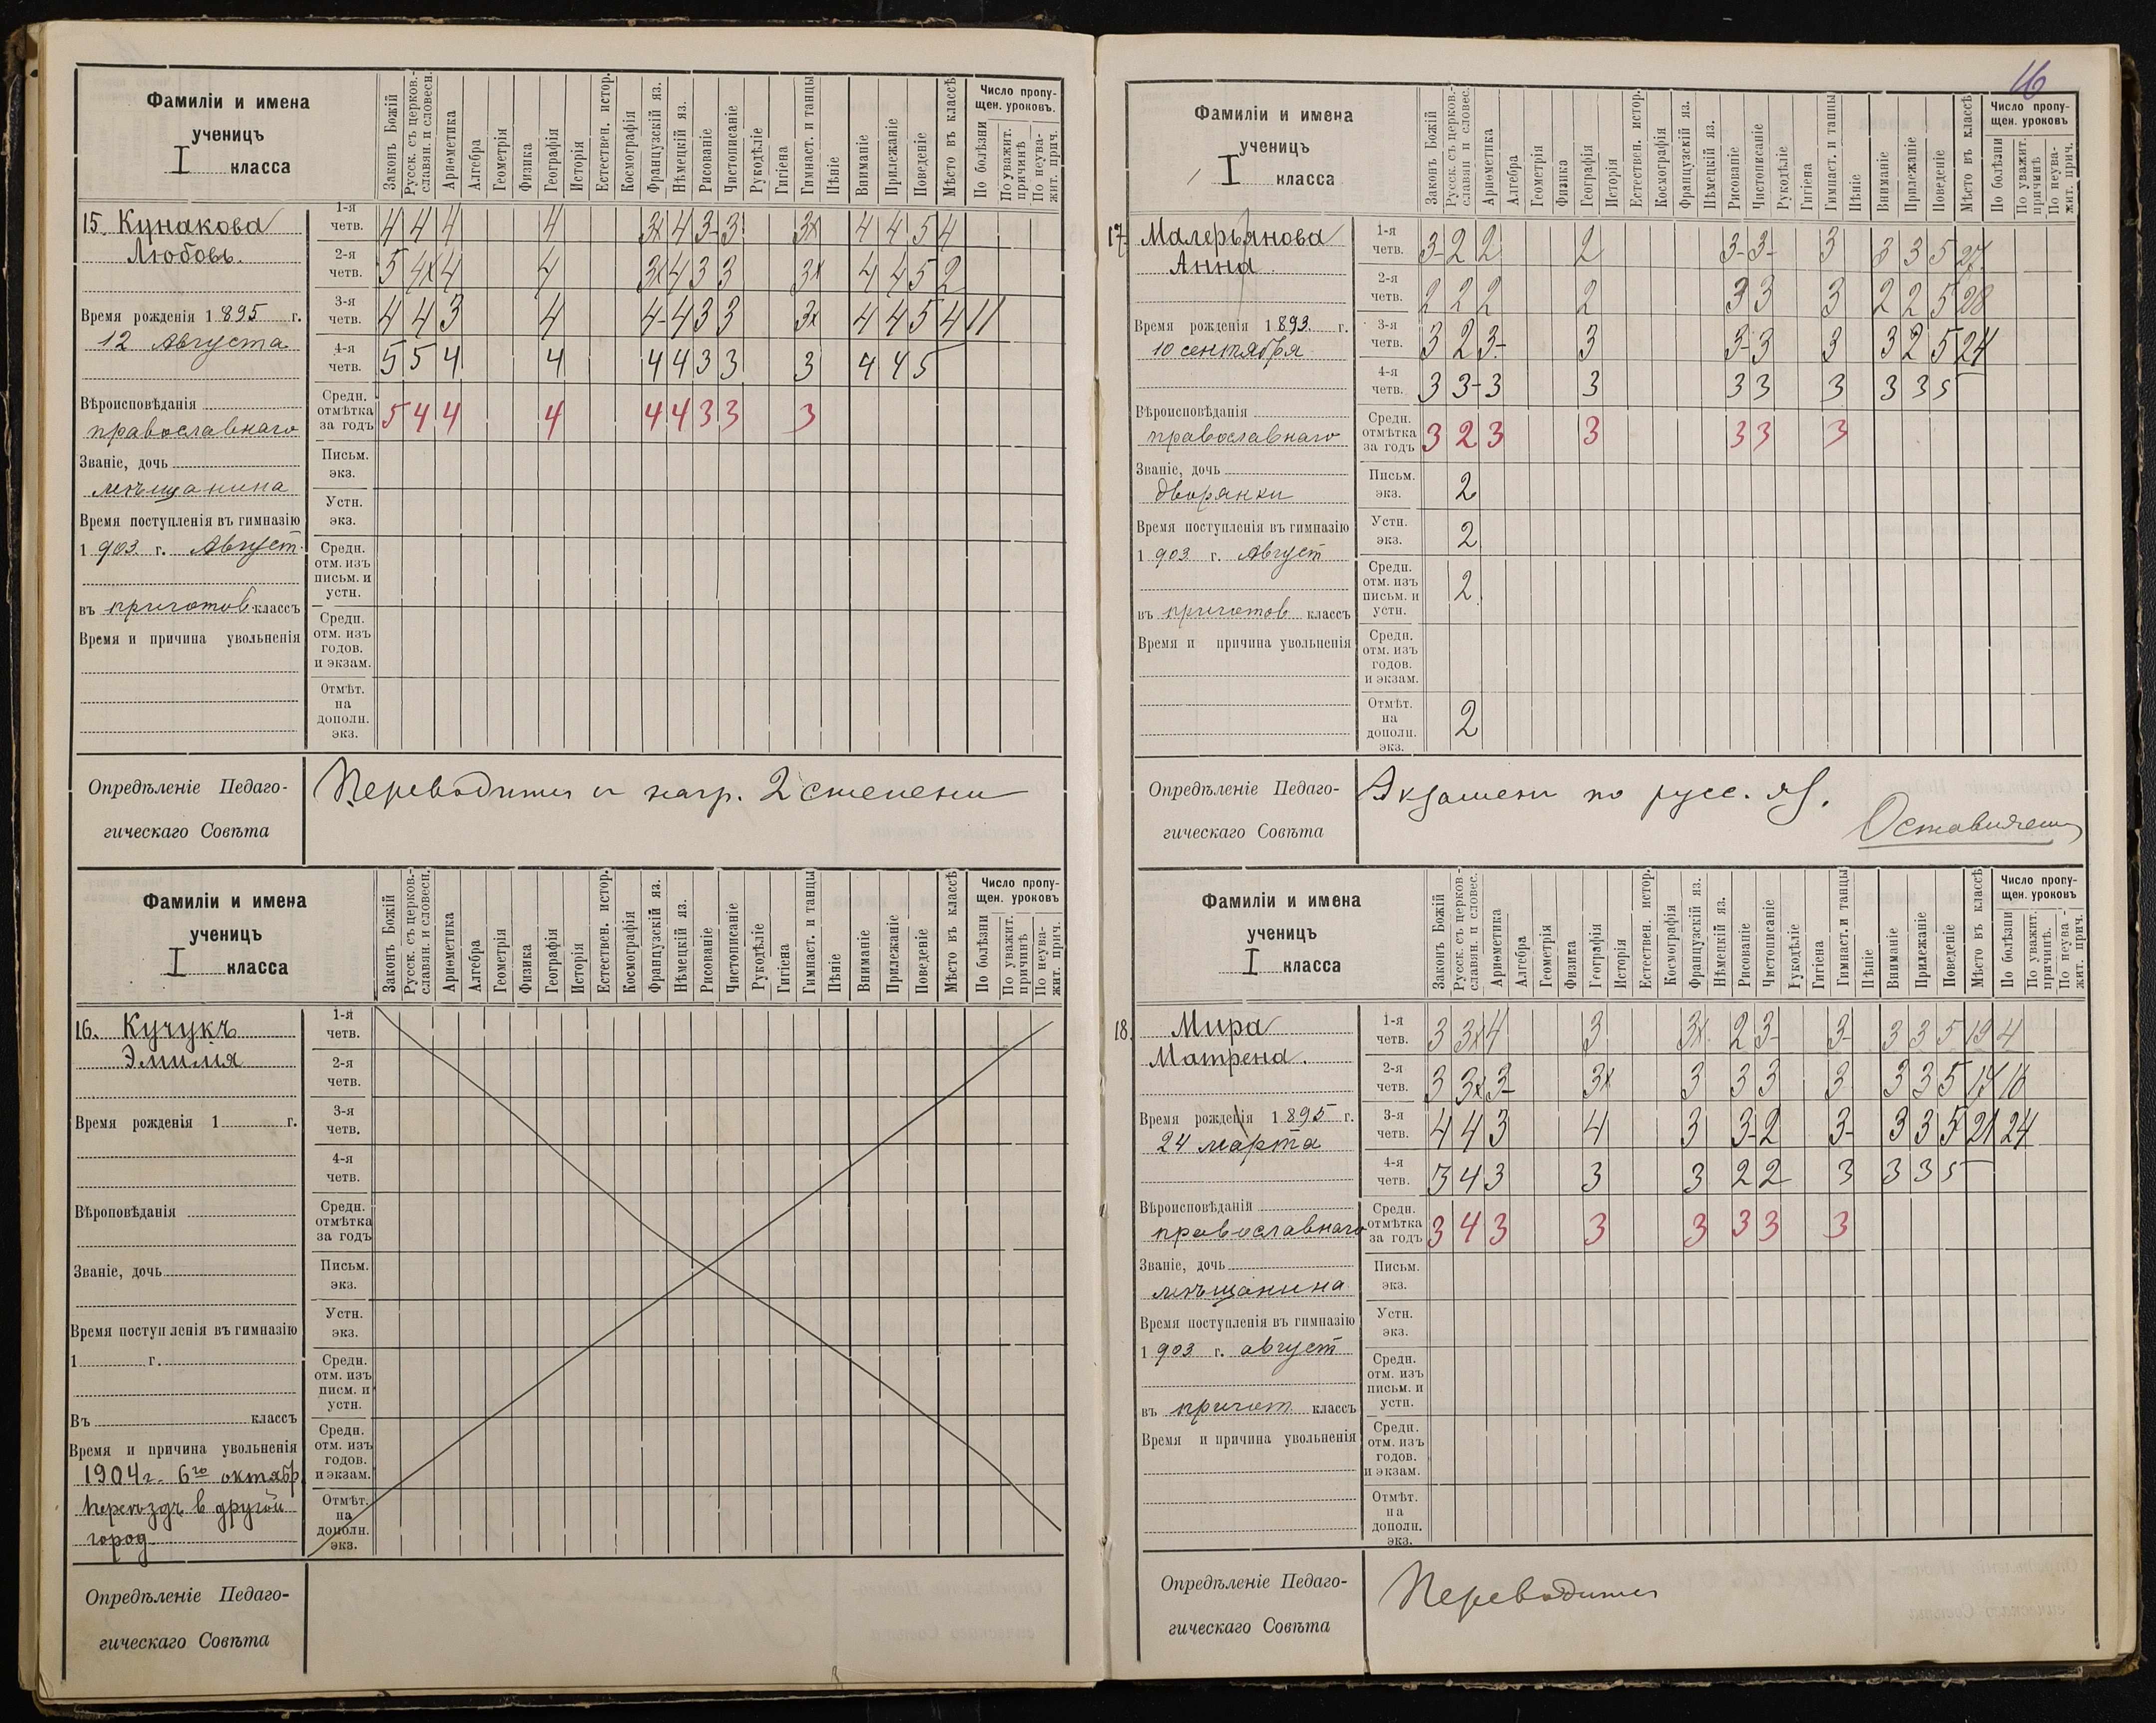 16
Фамиліи и имена
ученицъ
I класса
Законъ Божій
Русск. съ церков.-
славян. и словесн.
Ариѳметика
Алгебра
Геометрія
Физика
Географія
Исторія
Естествен. истор.
Космографія
Французскій яз.
Нѣмецкій яз.
Рисованіе
Чистописаніе
Рукодѣліе
Гигіена
Гимнаст. и танцы
Пѣніе
Вниманіе
Прилежаніе
Поведеніе
Мѣсто въ классѣ
Число пропу-
щен. уроковъ.
По болѣзни
По уважит.
причинѣ
По неува-
жит. прич.
15. Кунакова
Любовь.
Время рожденія 1895 г.
12 Августа
Вѣроисповѣданія
православнаго
Званіе, дочь
мѣщанина
Время поступленія въ гимназію
1903 г. Август
въ приготов классъ
Время и причина увольненія
1-я четв. 4 4 4 4 3х 4 3- 3 3х 4 4 5 4
2-я четв. 5 4х 4 4 3х 4 3 3 3х 4 4 5 2
3-я четв. 4 4 3 4 4- 4 3 3 3х 4 4 5 4 11
4-я четв. 5 5 4 4 4 4 3 3 3 4 4 5
Средн. отмѣтка за годъ 5 4 4 4 4 4 3 3 3
Письм. экз.
Устн. экз.
Средн. отм. изъ письм. и устн.
Средн. отм. изъ годов. и экзам.
Отмѣт. на дополн. экз.
Опредѣленіе Педаго-
гическаго Совѣта
Переводится съ нагр. 2 степени
Фамиліи и имена
ученицъ
I класса
Законъ Божій
Русск. съ церков.-
славян. и словесн.
Ариѳметика
Алгебра
Геометрія
Физика
Географія
Исторія
Естествен. истор.
Космографія
Французскій яз.
Нѣмецкій яз.
Рисованіе
Чистописаніе
Рукодѣліе
Гигіена
Гимнаст. и танцы
Пѣніе
Вниманіе
Прилежаніе
Поведеніе
Мѣсто въ классѣ
Число пропу-
щен. уроковъ
По болѣзни
По уважит.
причинѣ
По неува-
жит. прич.
16. Кучукъ
Эмилія
Время рожденія 1 г.
Вѣроповѣданія
Званіе, дочь
Время поступленія въ гимназію
1 г.
Въ классъ
Время и причина увольненія
1904 г. 6го октябр
переѣздъ в другой
город
1-я четв.
2-я четв.
3-я четв.
4-я четв.
Средн. отмѣтка за годъ
Письм. экз.
Устн. экз.
Средн. отм. изъ писм. и устн.
Средн. отм. изъ годов. и экзам.
Отмѣт. на дополн. экз.
Опредѣленіе Педаго-
гическаго Совѣта
Фамиліи и имена
ученицъ
I класса
Законъ Божій
Русск. съ церков.-
славян и словес.
Ариѳметика
Алгебра
Геометрія
Физика
Географія
Исторія
Естествен. истор.
Космографія
Французскій яз.
Нѣмецкій яз.
Рисованіе
Чистописаніе
Рукодѣліе
Гигіена
Гимнаст. и танцы
Пѣніе
Вниманіе
Прилежаніе
Поведеніе
Мѣсто въ классѣ
Число пропу-
щен. уроковъ
По болѣзни
По уважит.
причинѣ
По неува-
жит. прич.
17. Малерьянова
Анна
Время рожденія 1893 г.
10 сентября
Вѣроисповѣданія
православнаго
Званіе, дочь
дворянки
Время поступленія въ гимназію
1903 г. Август
въ приготов классъ
Время и причина увольненія
1-я четв. 3- 2 2 2 3- 3- 3 3 3 5 27
2-я четв. 2 2 2 2 3 3 3 2 2 5 28
3-я четв. 3 2 3- 3 3- 3 3 3 2 5 24
4-я четв. 3 3- 3 3 3 3 3 3 3 5
Средн. отмѣтка за годъ 3 2 3 3 3 3 3
Письм. экз. 2
Устн. экз. 2
Средн. отм. изъ письм. и устн. 2
Средн. отм. изъ годов. и экзам.
Отмѣт. на дополн. экз. 2
Опредѣленіе Педаго-
гическаго Совѣта
Экзамен по русс. яз.
Оставляется
Фамиліи и имена
ученицъ
I класса
Законъ Божій
Русск. съ церков-
славян. и словес.
Ариѳметика
Алгебра
Геометрія
Физика
Географія
Исторія
Естествен. истор.
Космографія
Французскій яз.
Нѣмецкій яз.
Рисованіе
Чистописаніе
Рукодѣліе
Гигіена
Гимнаст. и танцы
Пѣніе
Вниманіе
Прилежаніе
Поведеніе
Мѣсто въ классѣ
Число пропу-
щен. уроковъ
По болѣзни
По уважит.
причинѣ.
По неува-
жит. прич.
18. Мира
Матрена.
Время рожденія 1895 г.
24 марта
Вѣроисповѣданія
православнаго
Званіе, дочь
мѣщанина
Время поступленія въ гимназію
1903 г. август
въ пригот. классъ
Время и причина увольненія
1-я четв. 3 3х 4 3 3х 2 3- 3- 3 3 5 19 4
2-я четв. 3 3х 3- 3х 3 3 3 3 3 3 5 17 16
3-я четв. 4 4 3 4 3 3- 2 3- 3 3 5 21 24
4-я четв. 3 4 3 3 3 2 2 3 3 3 5
Средн. отмѣтка за годъ 3 4 3 3 3 3 3 3
Письм. экз.
Устн. экз.
Средн. отм. изъ письм. и устн.
Средн. отм. изъ годов. и экзам.
Отмѣт. на дополн. экз.
Опредѣленіе Педаго-
гическаго Совѣта
Переводится